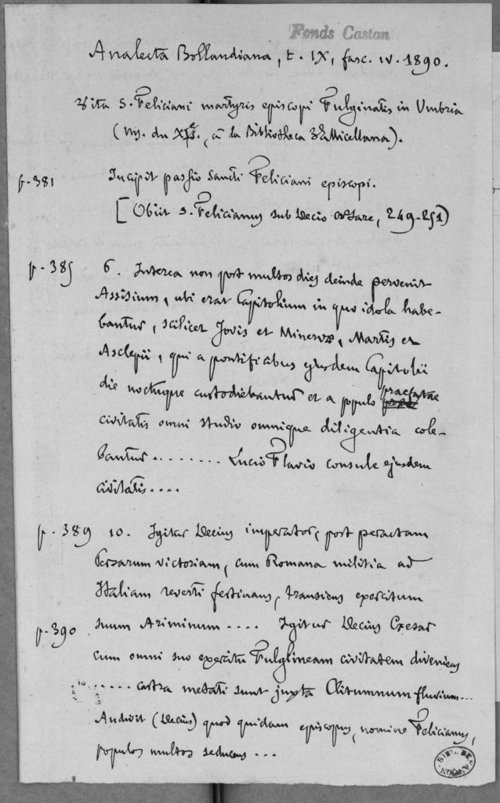 Fonds Castan
Analecta Bollandiana, t. IX, fasc. IV. 1890.
Vita S. Feliciani martyris episcopi Fulginatis in Umbria
(ms. du XIe s., à la Bibliotheca Vallicellana).
p. 381 Incipit passio sancti Feliciani episcopi.
[Obiit S. Felicianus sub Decio Caesare, 249-251)
p. 385 6. Interea non post multos dies deinde pervenit
Assisium, ubi erat Capitolium in quo idola habe-
bantur, scilicet Jovis et Minervæ, Martis et
Asclepii, qui a pontificibus ejusdem Capitolii
die noctuque custodiebantur et a populo praefatae
civitatis omni studio omnique diligentia cole-
bantur........ Lucio Flavio consule ejusdem
civitatis....
p. 389 10. Igitur Decius imperator, post peractam
Persarum victoriam, cum Romana militia ad
Italiam reverti festinans, transiens exercitum
suum Ariminum.... Igitur Decius Cæsar
p. 390
cum omni suo exercitu Fulgineam civitatem diveniens
...... castra metati sunt juxta Clitumnum fluvium...
Audivit (Decius) quod quidam episcopus, nomine Felicianus,
populos multos seducens...